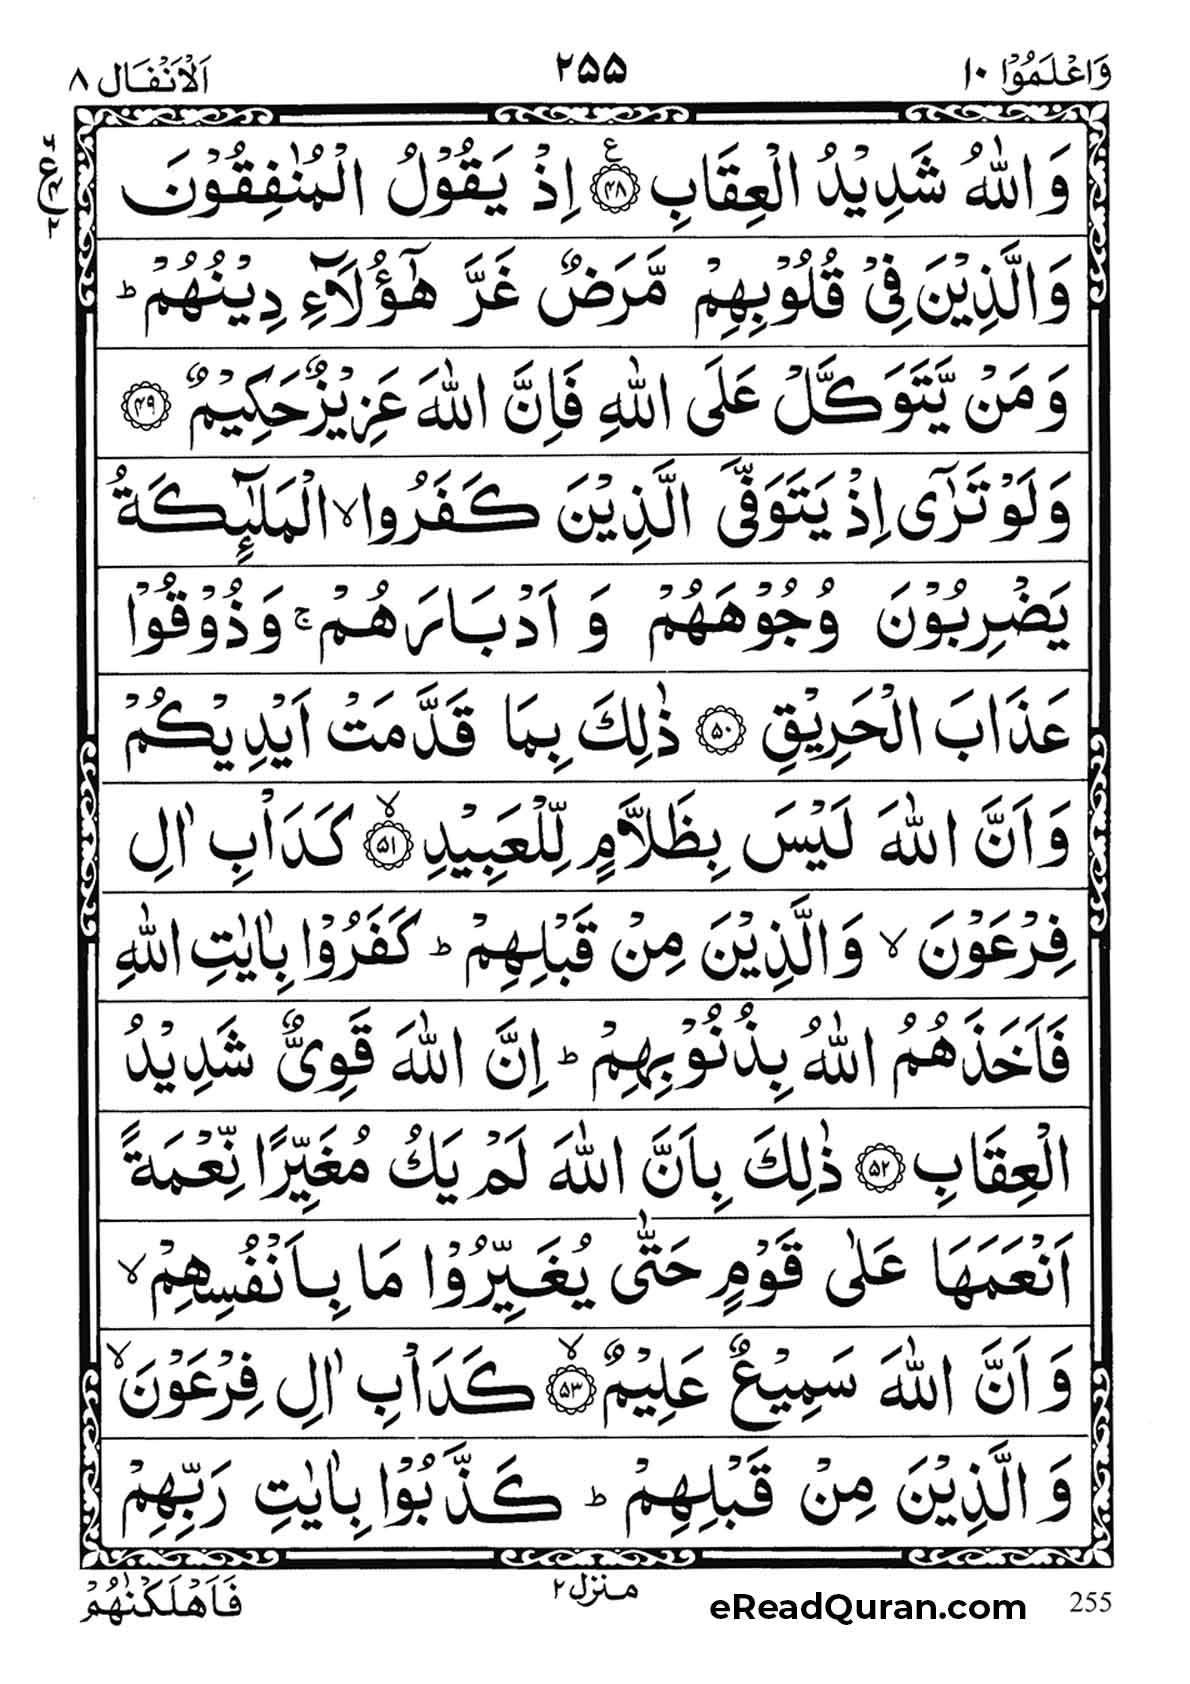 وَاعْلَمُوْۤا ١٠
۲۵۵
اَلْاَنْفَال ٨
وَاللّٰهُ شَدِيْدُ الْعِقَابِ ﴿۴۸﴾ ع اِذْ يَقُوْلُ الْمُنٰفِقُوْنَ
وَالَّذِيْنَ فِيْ قُلُوْبِهِمْ مَّرَضٌ غَرَّ هٰۤؤُلَآءِ دِيْنُهُمْ ؕ
وَمَنْ يَّتَوَكَّلْ عَلَى اللّٰهِ فَاِنَّ اللّٰهَ عَزِيْزٌ حَكِيْمٌ ﴿۴۹﴾
وَلَوْ تَرٰٓى اِذْ يَتَوَفَّى الَّذِيْنَ كَفَرُوا ۙ الْمَلٰٓئِكَةُ
يَضْرِبُوْنَ وُجُوْهَهُمْ وَ اَدْبَارَهُمْ ۚ وَذُوْقُوْا
عَذَابَ الْحَرِيْقِ ﴿۵۰﴾ ذٰلِكَ بِمَا قَدَّمَتْ اَيْدِيْكُمْ
وَاَنَّ اللّٰهَ لَيْسَ بِظَلَّامٍ لِّلْعَبِيْدِ ۙ﴿۵۱﴾ كَدَاْبِ اٰلِ
فِرْعَوْنَ ۙ وَالَّذِيْنَ مِنْ قَبْلِهِمْ ؕ كَفَرُوْا بِاٰيٰتِ اللّٰهِ
فَاَخَذَهُمُ اللّٰهُ بِذُنُوْبِهِمْ ؕ اِنَّ اللّٰهَ قَوِيٌّ شَدِيْدُ
الْعِقَابِ ﴿۵۲﴾ ذٰلِكَ بِاَنَّ اللّٰهَ لَمْ يَكُ مُغَيِّرًا نِّعْمَةً
اَنْعَمَهَا عَلٰى قَوْمٍ حَتّٰى يُغَيِّرُوْا مَا بِاَنْفُسِهِمْ ۙ
وَاَنَّ اللّٰهَ سَمِيْعٌ عَلِيْمٌ ۙ﴿۵۳﴾ كَدَاْبِ اٰلِ فِرْعَوْنَ ۙ
وَالَّذِيْنَ مِنْ قَبْلِهِمْ ؕ كَذَّبُوْا بِاٰيٰتِ رَبِّهِمْ
فَاَهْلَكْنٰهُمْ
منزل ٢
eReadQuran.com
255